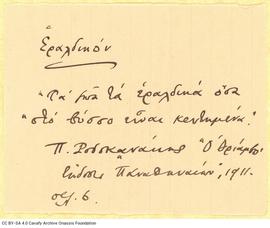 Ἐραλδικόν
"Γιὰ τὰ ἐραλδικὰ ὅσα
"στὸ βύσσο εἶναι κεντημένα."
Π. Ροδοκανάκης "Ὁ Θρίαμβος"
Ἔκδοσις "Παναθηναίων", 1911.
σελ. 6.
CC BY-SA 4.0 Cavafy Archive Onassis Foundation